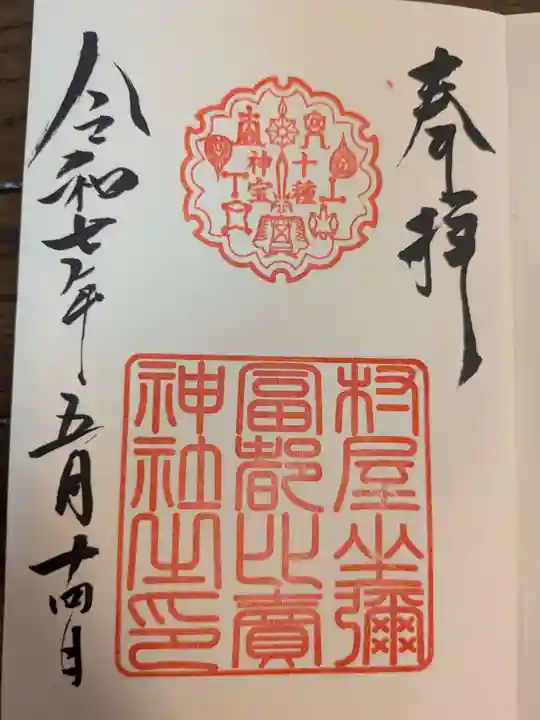 奉拝
十種
神宝
村屋坐彌
冨都比賣
神社之印
令和七年五月十四日